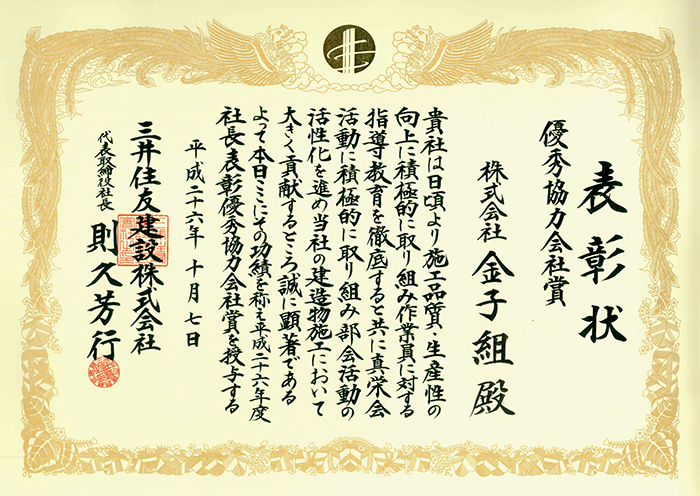 表彰状
優秀協力会社賞
株式会社 金子組 殿
貴社は日頃より施工品質・生産性の
向上に積極的に取り組み作業員に対する
指導教育を徹底すると共に真栄会
活動に積極的に取り組み部会活動の
活性化を進め当社の建造物施工において
大きく貢献するところ誠に顕著である
よって本日ここにその功績を称え平成二十六年度
社長表彰優秀協力会社賞を授与する
平成二十六年 十月七日
三井住友建設株式会社
代表取締役社長 則久芳行